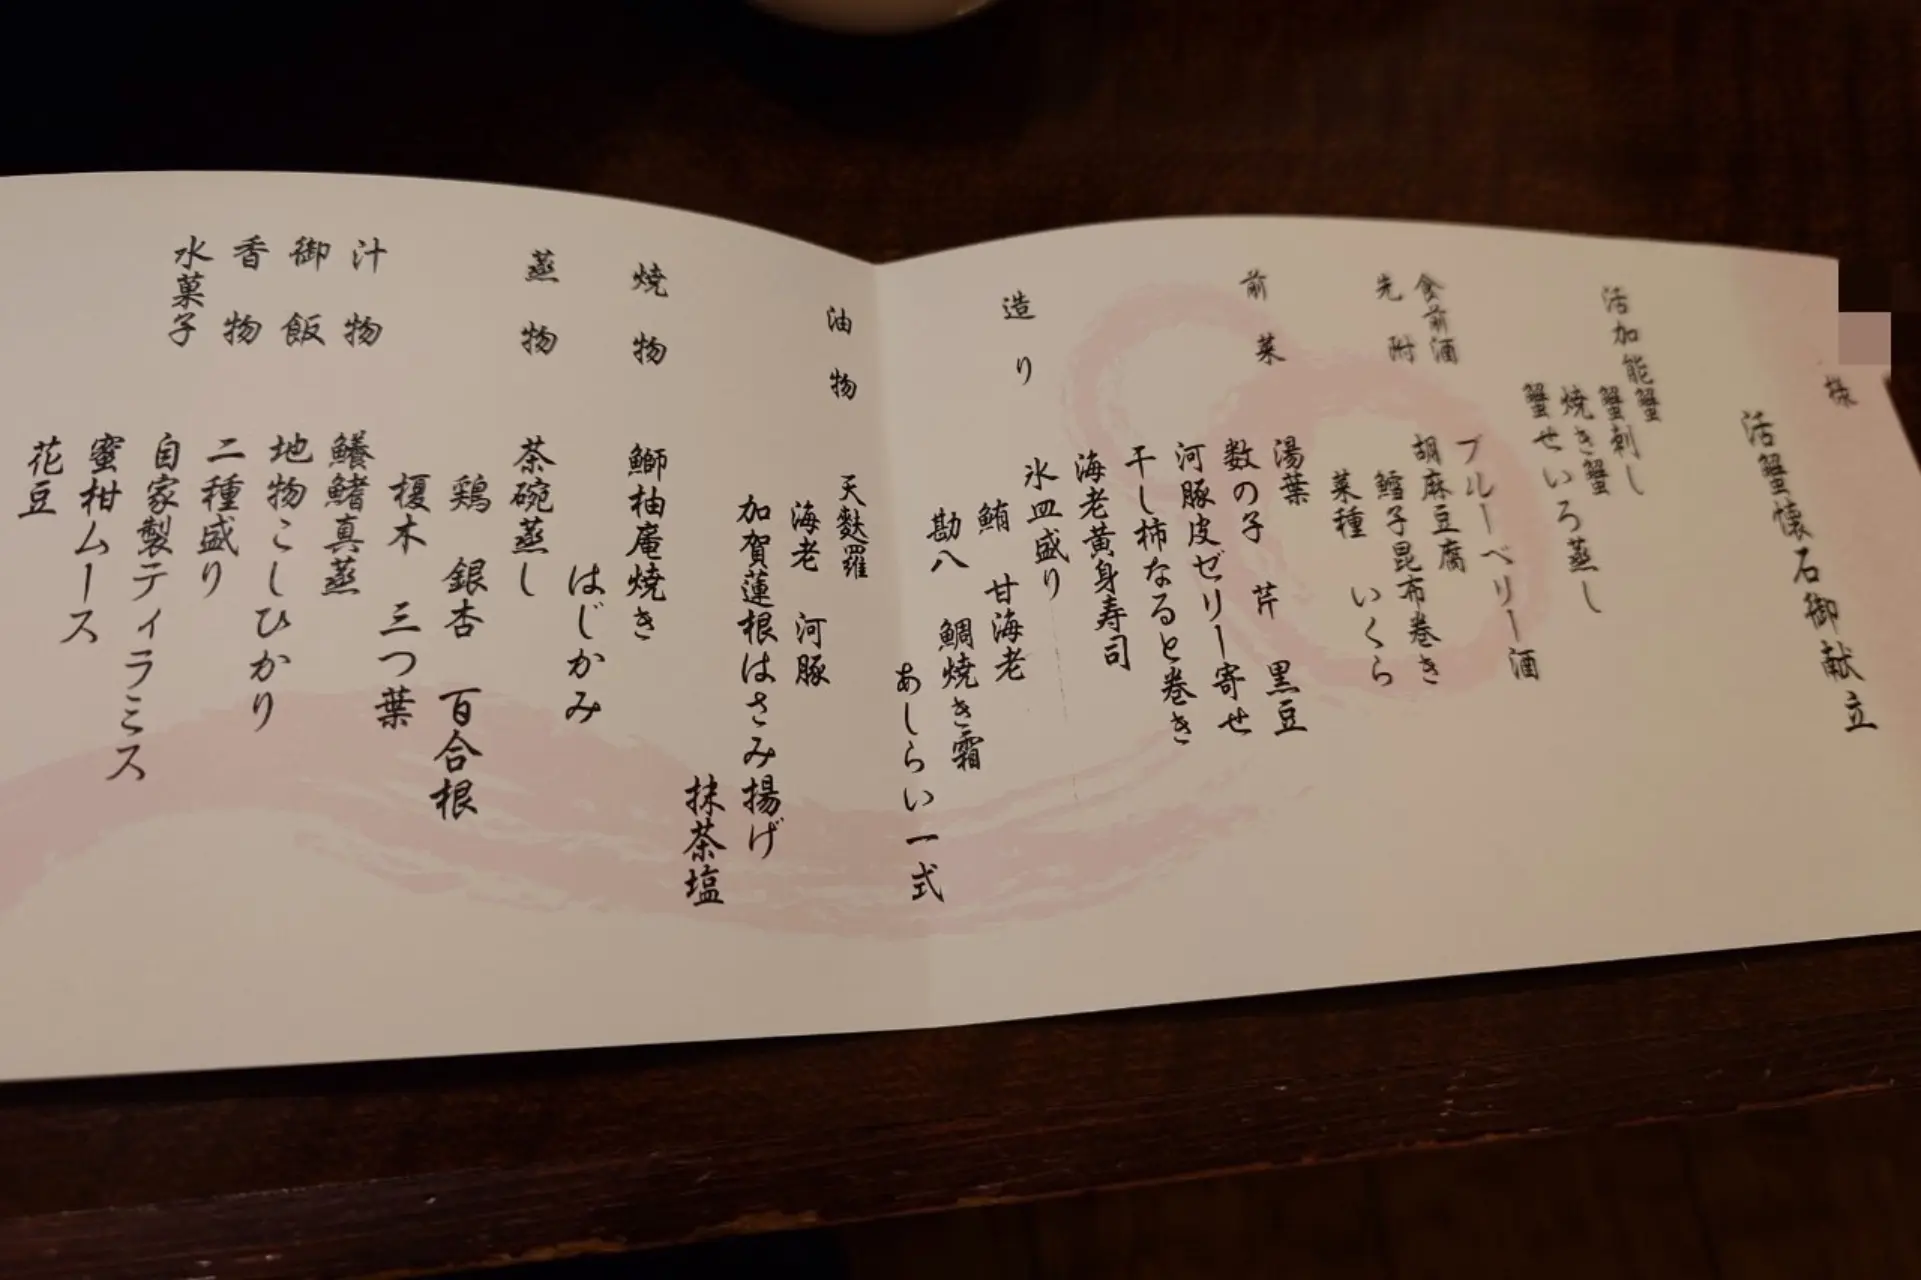 様
活蟹懐石御献立
活加能蟹
蟹刺し
焼き蟹
蟹せいろ蒸し
食前酒 ブルーベリー酒
先附 胡麻豆腐
鱈子昆布巻き
菜種 いくら
前菜 湯葉 芹 黒豆
数の子
河豚皮ゼリー寄せ
干し柿なると巻き
海老黄身寿司
造り 氷皿盛り
鮪 甘海老
勘八 鯛焼き霜
あしらい一式
油物 天麩羅
海老 河豚
加賀蓮根はさみ揚げ
抹茶塩
焼物 鰤柚庵焼き
はじかみ
蒸物 茶碗蒸し
鶏 銀杏 百合根
榎木 三つ葉
汁物 鱶鰭真蒸
御飯 地物こしひかり
香物 二種盛り
水菓子 自家製ティラミス
蜜柑ムース
花豆